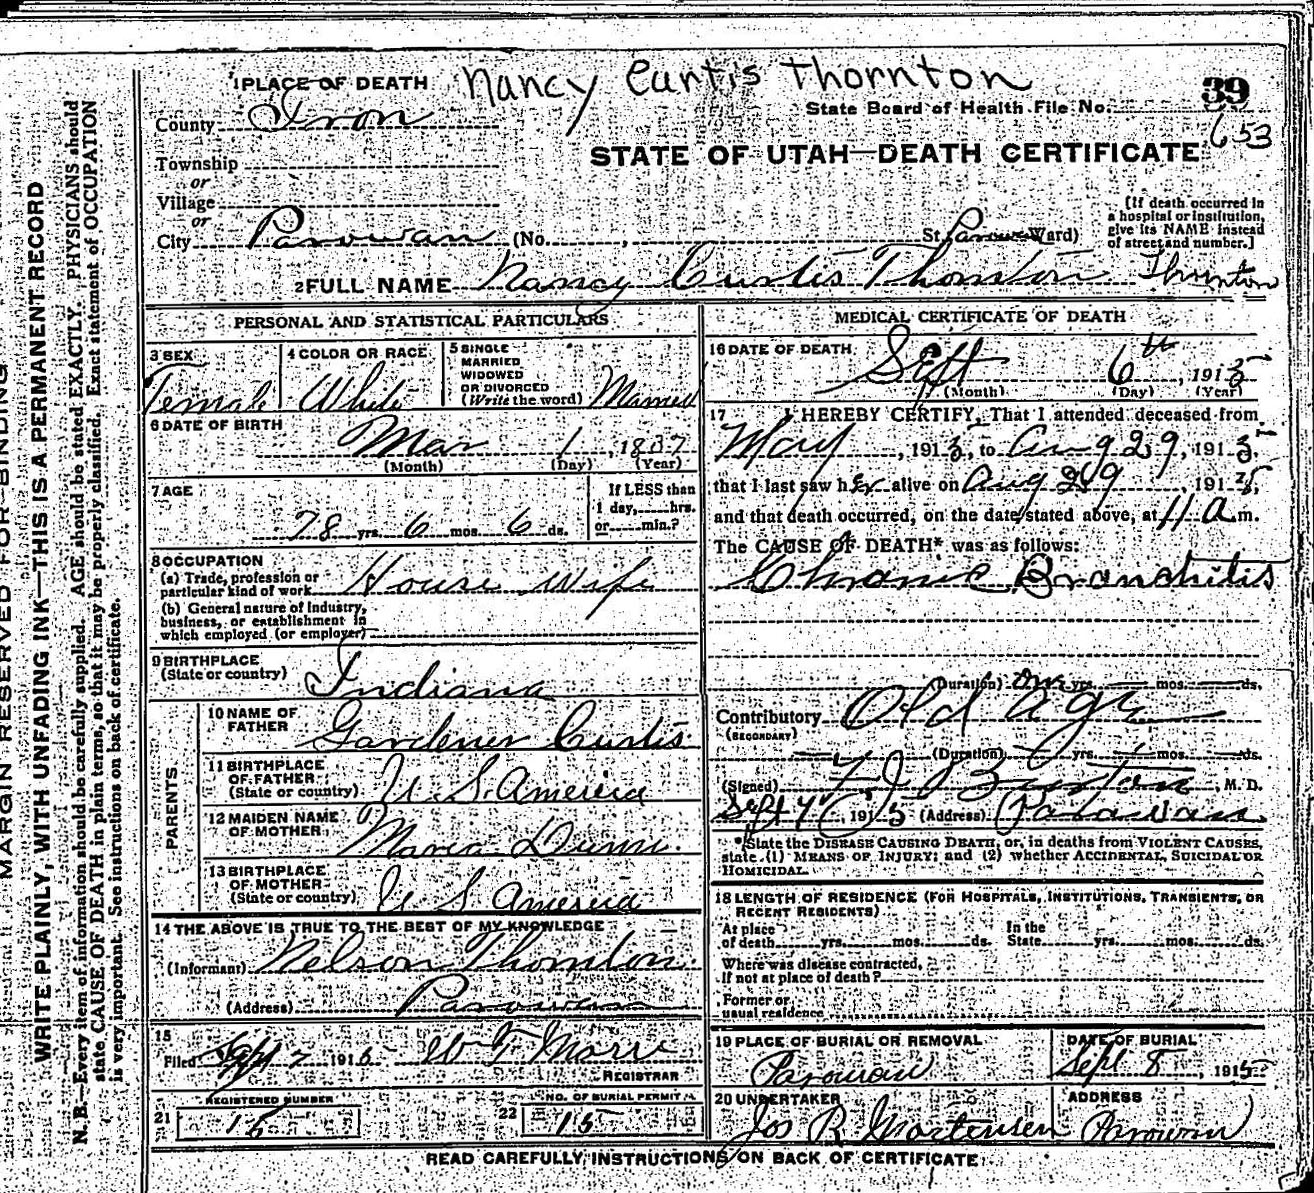 MARGIN RESERVED FOR BINDING
WRITE PLAINLY, WITH UNFADING INK—THIS IS A PERMANENT RECORD
N. B.—Every item of information should be carefully supplied. AGE should be stated EXACTLY. PHYSICIANS should
state CAUSE OF DEATH in plain terms, so that it may be properly classified. Exact statement of OCCUPATION
is very important. See instructions on back of certificate.
1 PLACE OF DEATH Nancy Curtis Thornton
39
State Board of Health File No.
653
County Iron
STATE OF UTAH—DEATH CERTIFICATE
Township
or
Village
or
City Parowan (No. , St. Ward)
[If death occurred in
a hospital or institution,
give its NAME instead
of street and number.]
2 FULL NAME Nancy Curtis Thornton Thornton
PERSONAL AND STATISTICAL PARTICULARS
3 SEX Female
4 COLOR OR RACE White
5 SINGLE
MARRIED
WIDOWED
OR DIVORCED
(Write the word) Married
6 DATE OF BIRTH
Mar 1, 1837
(Month) (Day) (Year)
7 AGE
78 yrs. 6 mos. 6 ds.
If LESS than
1 day, hrs.
or min.?
8 OCCUPATION
(a) Trade, profession or
particular kind of work House Wife
(b) General nature of Industry,
business, or establishment in
which employed (or employer)
9 BIRTHPLACE
(State or country) Indiana
PARENTS
10 NAME OF
FATHER Gardener Curtis
11 BIRTHPLACE
OF FATHER
(State or country) U S America
12 MAIDEN NAME
OF MOTHER Maria Dunn.
13 BIRTHPLACE
OF MOTHER
(State or country) U S America
14 THE ABOVE IS TRUE TO THE BEST OF MY KNOWLEDGE
(Informant) Nelson Thornton.
(Address) Parowan
15
Filed Sept 7 1915
REGISTRAR
REGISTERED NUMBER
21 15
NO. OF BURIAL PERMIT
22 15
MEDICAL CERTIFICATE OF DEATH
16 DATE OF DEATH
Sept 6th, 1915
(Month) (Day) (Year)
17 I HEREBY CERTIFY, That I attended deceased from
May, 1915, to Aug 29, 1915,
that I last saw her alive on Aug 29, 1915,
and that death occurred, on the date stated above, at 11 a m.
The CAUSE OF DEATH* was as follows:
Chronic Bronchitis
(Duration) yrs. mos. ds.
Contributory Old age
(SECONDARY)
(Duration) yrs. mos. ds.
(Signed) Burton, M. D.
Sept 7, 1915 (Address) Parowan
*State the DISEASE CAUSING DEATH, or, in deaths from VIOLENT CAUSES,
state (1) MEANS OF INJURY; and (2) whether ACCIDENTAL, SUICIDAL OR
HOMICIDAL.
18 LENGTH OF RESIDENCE (FOR HOSPITALS, INSTITUTIONS, TRANSIENTS, OR
RECENT RESIDENTS)
At place
of death yrs. mos. ds.
In the
State yrs. mos. ds.
Where was disease contracted,
If not at place of death?
Former or
usual residence
19 PLACE OF BURIAL OR REMOVAL
Parowan
DATE OF BURIAL
Sept. 8, 1915
20 UNDERTAKER
Jos R Mortensen
ADDRESS
Parowan
READ CAREFULLY INSTRUCTIONS ON BACK OF CERTIFICATE